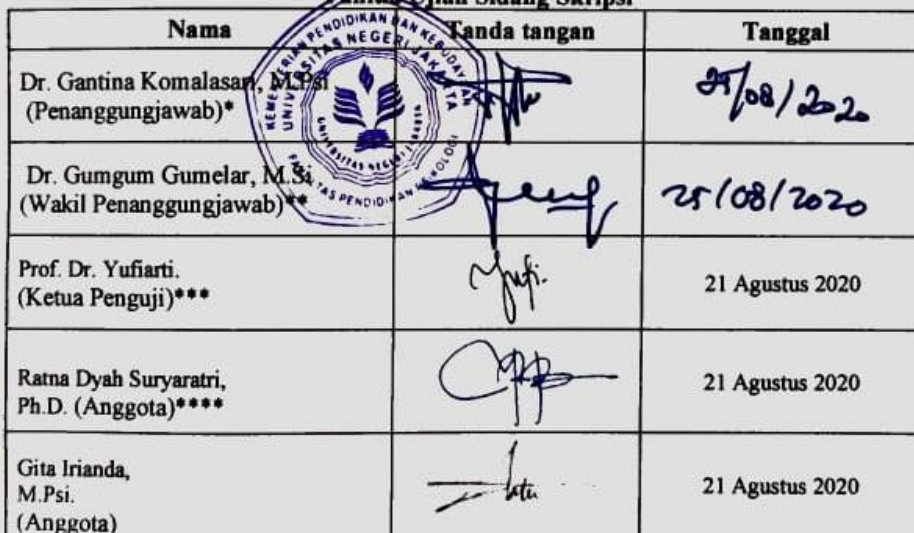 Panitia Ujian Sidang Skripsi
Nama Tanda tangan Tanggal
Dr. Gantina Komalasari, M.Psi
(Penanggungjawab)*
25/08/2020
Dr. Gumgum Gumelar, M.Si
(Wakil Penanggungjawab)**
25/08/2020
Prof. Dr. Yufiarti.
(Ketua Penguji)***
Yufi.
21 Agustus 2020
Ratna Dyah Suryaratri,
Ph.D. (Anggota)****
21 Agustus 2020
Gita Irianda,
M.Psi.
(Anggota)
21 Agustus 2020
KEMENTERIAN PENDIDIKAN DAN KEBUDAYAAN
UNIVERSITAS NEGERI JAKARTA
UNIVERSITAS NEGERI JAKARTA
FAKULTAS PENDIDIKAN PSIKOLOGI